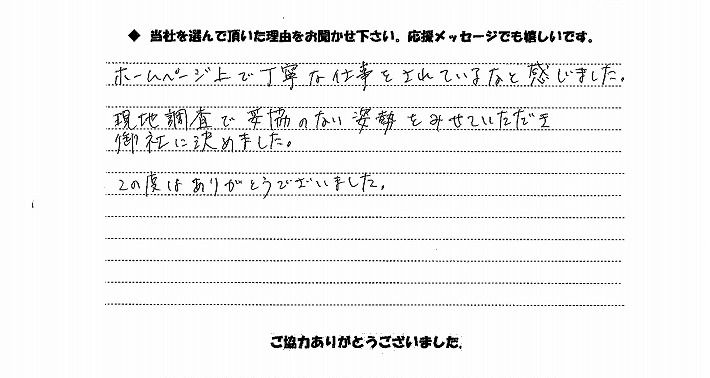 ◆ 当社を選んで頂いた理由をお聞かせ下さい。応援メッセージでも嬉しいです。
ホームページ上で丁寧な仕事をされているなと感じました。
現地調査で妥協のない姿勢をみせていただき
御社に決めました。
この度はありがとうございました。
ご協力ありがとうございました。